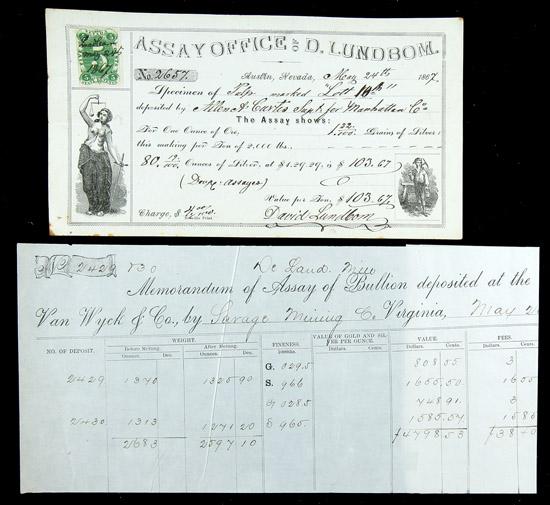 ASSAY OFFICE OF D. LUNDBOM.
No. 2657.
Austin, Nevada, May 24th 1867
Specimen of Pulp marked "Lott 10th"
deposited by Allen A. Curtis Supt for Manhattan Co
The Assay shows:
For One Ounce of Ore, Grains of Silver;
this making per Ton of 2,000 lbs.
80 Ounces of Silver, at $1.29.29, is $ 103.67
Value per Ton, $ 103.67
Charge, $
David Lundbom
No. 2429
Memorandum of Assay of Bullion deposited at the
Van Wyck & Co., by Savage Mining Co. Virginia, May
NO. OF DEPOSIT. WEIGHT. FINENESS VALUE OF GOLD AND SILVER PER OUNCE. VALUE. FEES.
Before Melting. After Melting.
Ounces. Dec. Ounces. Dec. Dollars. Cents. Dollars. Cents. Dollars. Cents.
G. 029.5 808 55 3
2429 1370 1325 90 S. 966 1655.50 16 55
G 028.5 748 91. 3
2430 1313 1271 20 S 965. 1585.57 15 85
2683 2597 10 $4798 53 $38 40